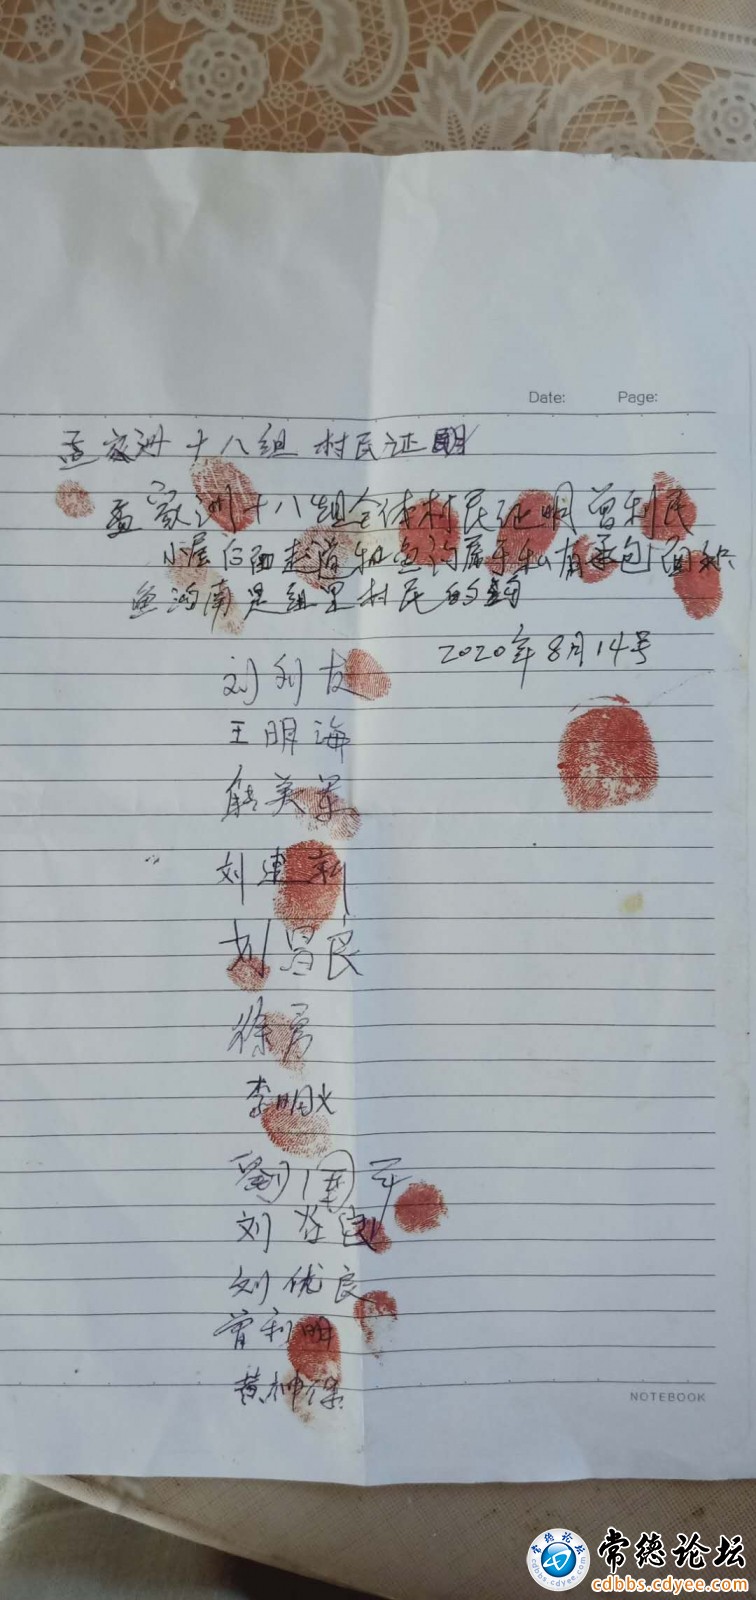 Date: Page:
孟家洲十八组村民证明
孟家洲十八组全体村民证明曾利民
小屋后面赵道初鱼沟属于私有承包
鱼沟南是组里村民的
2020年8月14号
刘利友
王明海
熊美军
刘建新
刘昌良
徐勇
李明火
劉国平
刘在良
刘优良
曾利明
黄坤保
NOTEBOOK
常德论坛
常德论坛
cdbbs.cdyee.com
cdbbs.cdyee.com